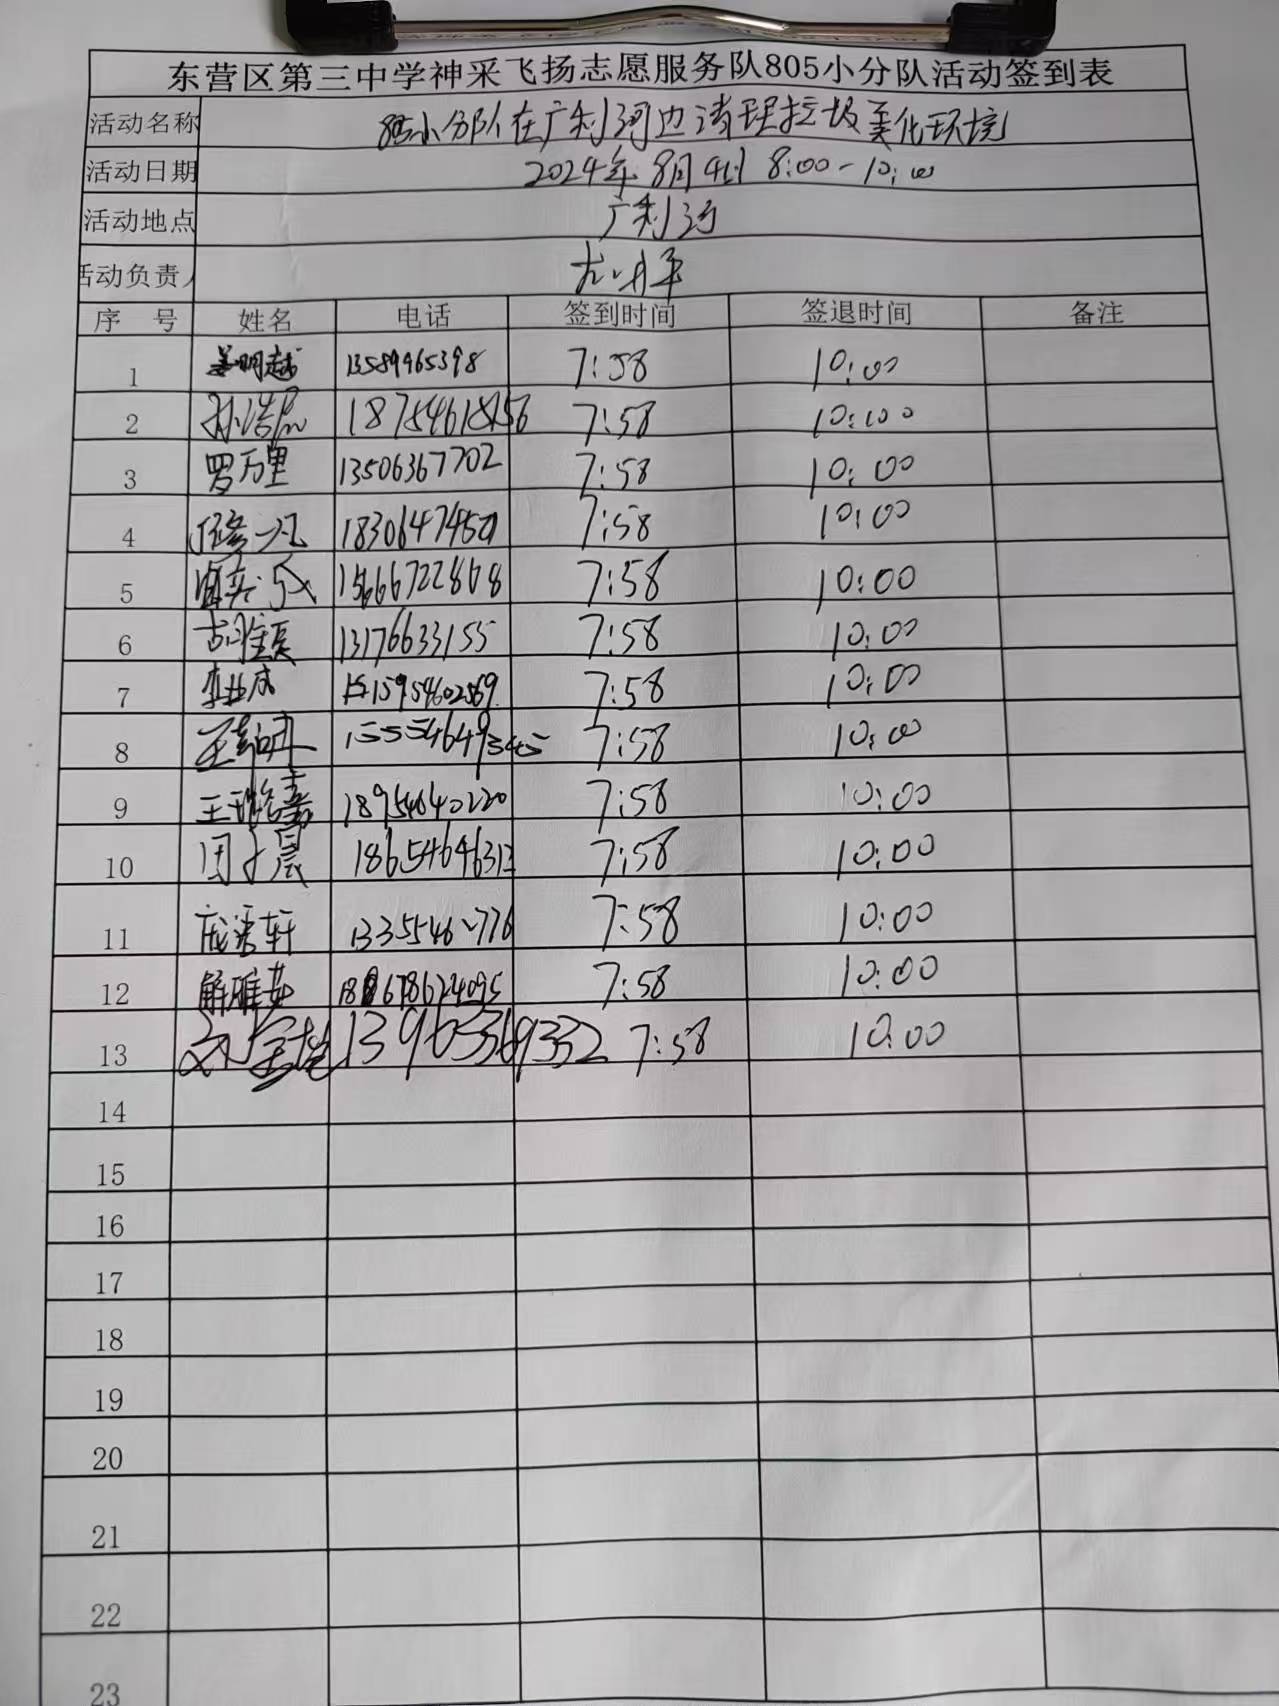 东营区第三中学神采飞扬志愿服务队805小分队活动签到表
活动名称 805小分队在广利河边清理垃圾美化环境
活动日期 2024年8月4日 8:00-10:00
活动地点 广利河
活动负责人
序号 姓名 电话 签到时间 签退时间 备注
1 姜明越 13589465398 7:58 10:00
2 7:58 10:00
3 罗万里 13506367702 7:58 10:00
4 7:58 10:00
5 15666722868 7:58 10:00
6 13176633155 7:58 10:00
7 15954602569 7:58 10:00
8 15554649345 7:58 10:00
9 18954640220 7:58 10:00
10 周子晨 18654646313 7:58 10:00
11 7:58 10:00
12 解雅茹 18678624095 7:58 10:00
13 7:58 10:00
14
15
16
17
18
19
20
21
22
23